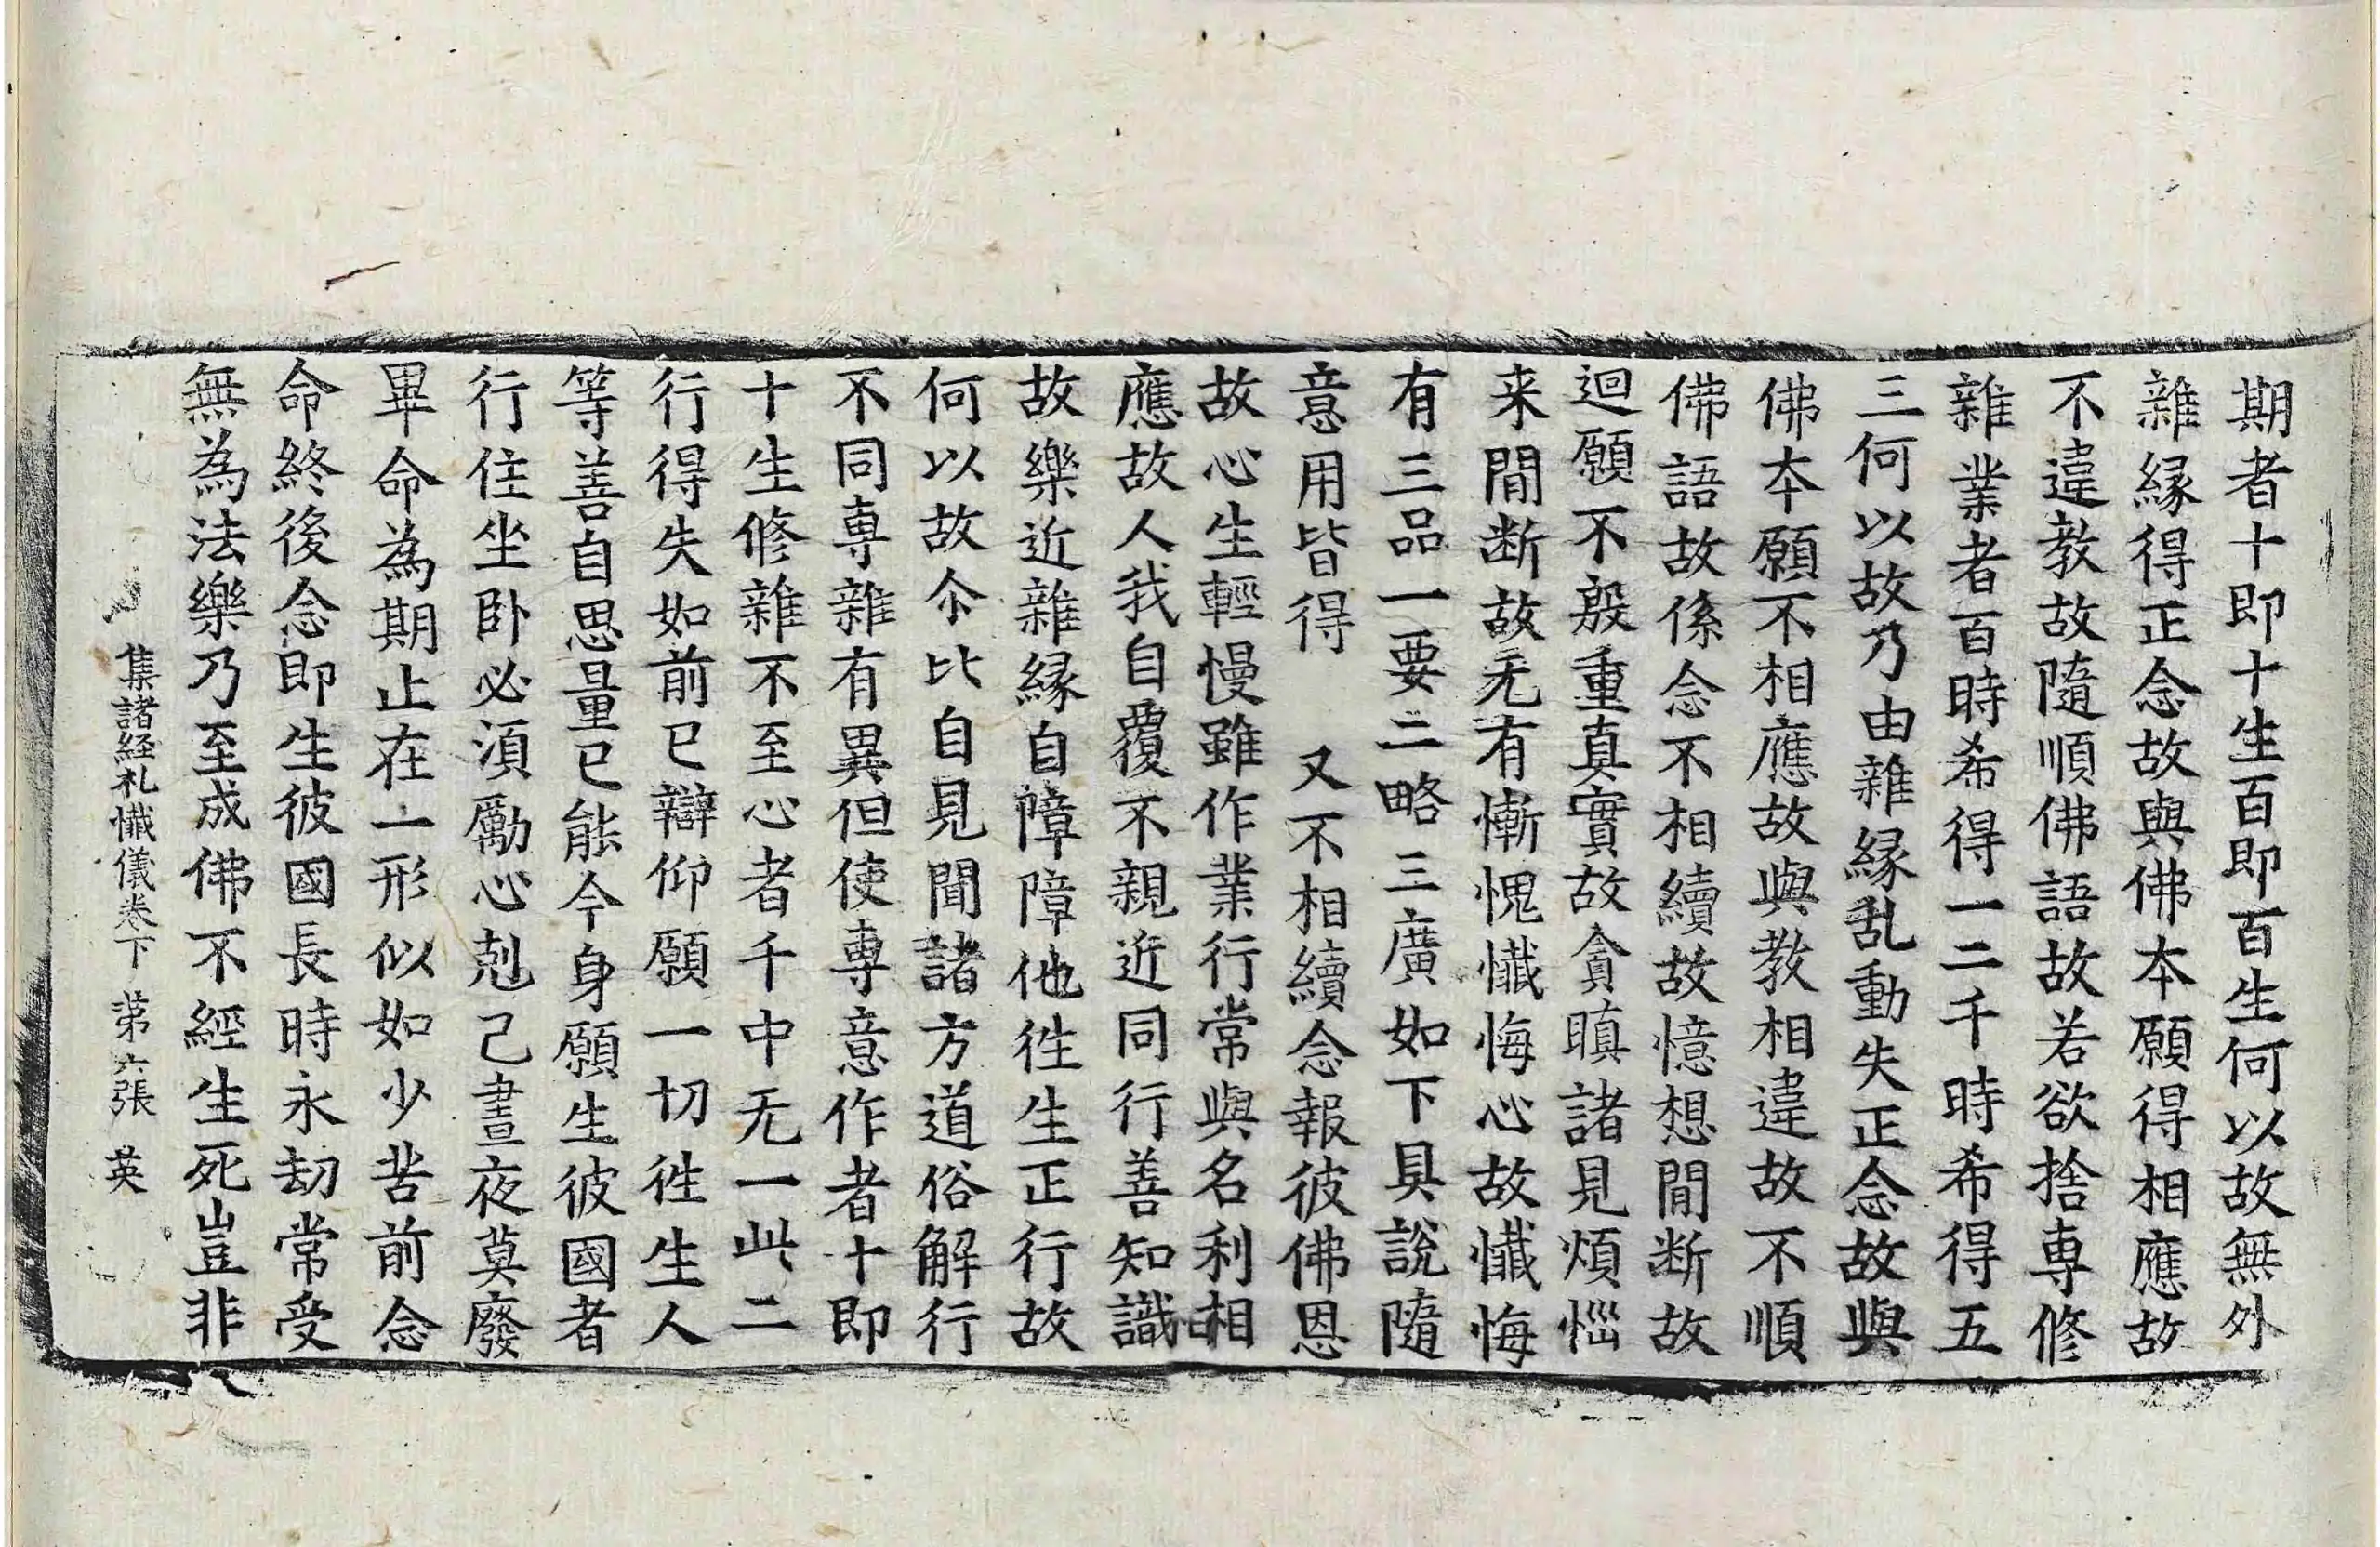 期者十即十生百即百生何以故無外
雜縁得正念故與佛本願得相應故
不違教故隨順佛語故若欲捨專修
雜業者百時希得一二千時希得五
三何以故乃由雜縁乱動失正念故與
佛本願不相應故與教相違故不順
佛語故係念不相續故憶想間断故
迴願不殷重真實故貪瞋諸見煩惱
来間断故无有慚愧懺悔心故懺悔
有三品一要二略三廣如下具說隨
意用皆得　又不相續念報彼佛恩
故心生輕慢雖作業行常與名利相
應故人我自覆不親近同行善知識
故樂近雜縁自障障他徃生正行故
何以故余比自見聞諸方道俗解行
不同專雜有異但使專意作者十即
十生修雜不至心者千中无一此二
行得失如前已辯仰願一切徃生人
等善自思量已能今身願生彼國者
行住坐卧必須勵心剋己晝夜莫廢
畢命為期止在一形似如少苦前念
命終後念即生彼國長時永劫常受
無為法樂乃至成佛不經生死豈非
集諸経礼懺儀卷下　苐六張　英